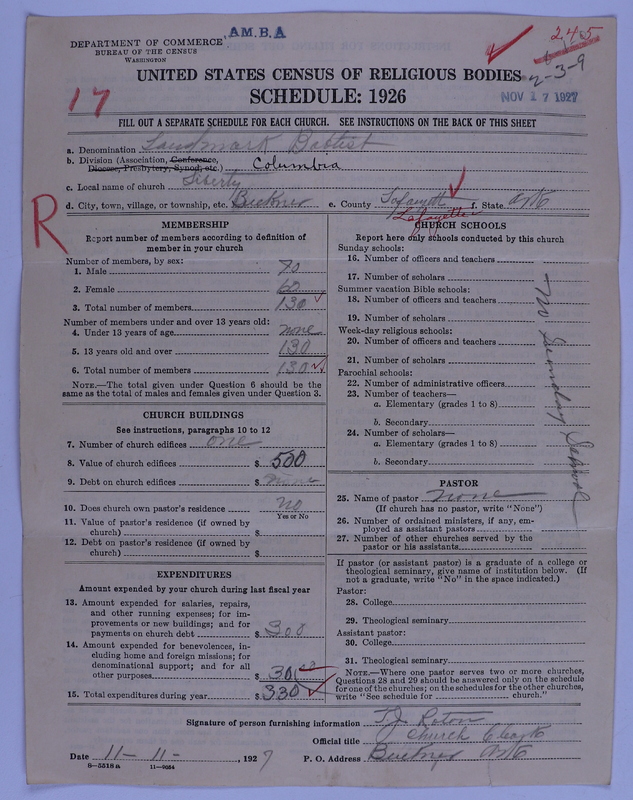 A.M.B.A
245
DEPARTMENT OF COMMERCE
BUREAU OF THE CENSUS
WASHINGTON
2-3-9
UNITED STATES CENSUS OF RELIGIOUS BODIES
17
SCHEDULE: 1926
NOV 17 1927
FILL OUT A SEPARATE SCHEDULE FOR EACH CHURCH. SEE INSTRUCTIONS ON THE BACK OF THIS SHEET
a. Denomination Landmark Baptist
b. Division (Association, Conference, Diocese, Presbytery, Synod, etc.) Columbia
c. Local name of church Liberty
d. City, town, village, or township, etc. Buckner e. County Lafayett f. State Ark
Lafayette
R
MEMBERSHIP
Report number of members according to definition of member in your church
Number of members, by sex:
1. Male 70
2. Female 60
3. Total number of members 130
Number of members under and over 13 years old:
4. Under 13 years of age none
5. 13 years old and over 130
6. Total number of members 130
NOTE.—The total given under Question 6 should be the same as the total of males and females given under Question 3.
CHURCH BUILDINGS
See instructions, paragraphs 10 to 12
7. Number of church edifices one
8. Value of church edifices $ 500
9. Debt on church edifices $ none
10. Does church own pastor's residence no
Yes or No
11. Value of pastor's residence (if owned by church) $
12. Debt on pastor's residence (if owned by church) $
EXPENDITURES
Amount expended by your church during last fiscal year
13. Amount expended for salaries, repairs, and other running expenses; for improvements or new buildings; and for payments on church debt $ 300
14. Amount expended for benevolences, including home and foreign missions; for denominational support; and for all other purposes $ 30
15. Total expenditures during year $ 330
CHURCH SCHOOLS
Report here only schools conducted by this church
Sunday schools:
16. Number of officers and teachers
17. Number of scholars
Summer vacation Bible schools:
18. Number of officers and teachers
19. Number of scholars
Week-day religious schools:
20. Number of officers and teachers
21. Number of scholars
Parochial schools:
22. Number of administrative officers
23. Number of teachers—
a. Elementary (grades 1 to 8)
b. Secondary
24. Number of scholars—
a. Elementary (grades 1 to 8)
b. Secondary
No Sunday School
PASTOR
25. Name of pastor none
(If church has no pastor, write "None")
26. Number of ordained ministers, if any, employed as assistant pastors
27. Number of other churches served by the pastor or his assistants
If pastor (or assistant pastor) is a graduate of a college or theological seminary, give name of institution below. (If not a graduate, write "No" in the space indicated.)
Pastor:
28. College
29. Theological seminary
Assistant pastor:
30. College
31. Theological seminary
NOTE.—Where one pastor serves two or more churches, Questions 28 and 29 should be answered only on the schedule for one of the churches; on the schedules for the other churches, write "See schedule for church."
Signature of person furnishing information T. J. Roton
Official title Church Clerk
Date 11-11-, 1927 P. O. Address Buckner Ark
8-5518a 11-9054